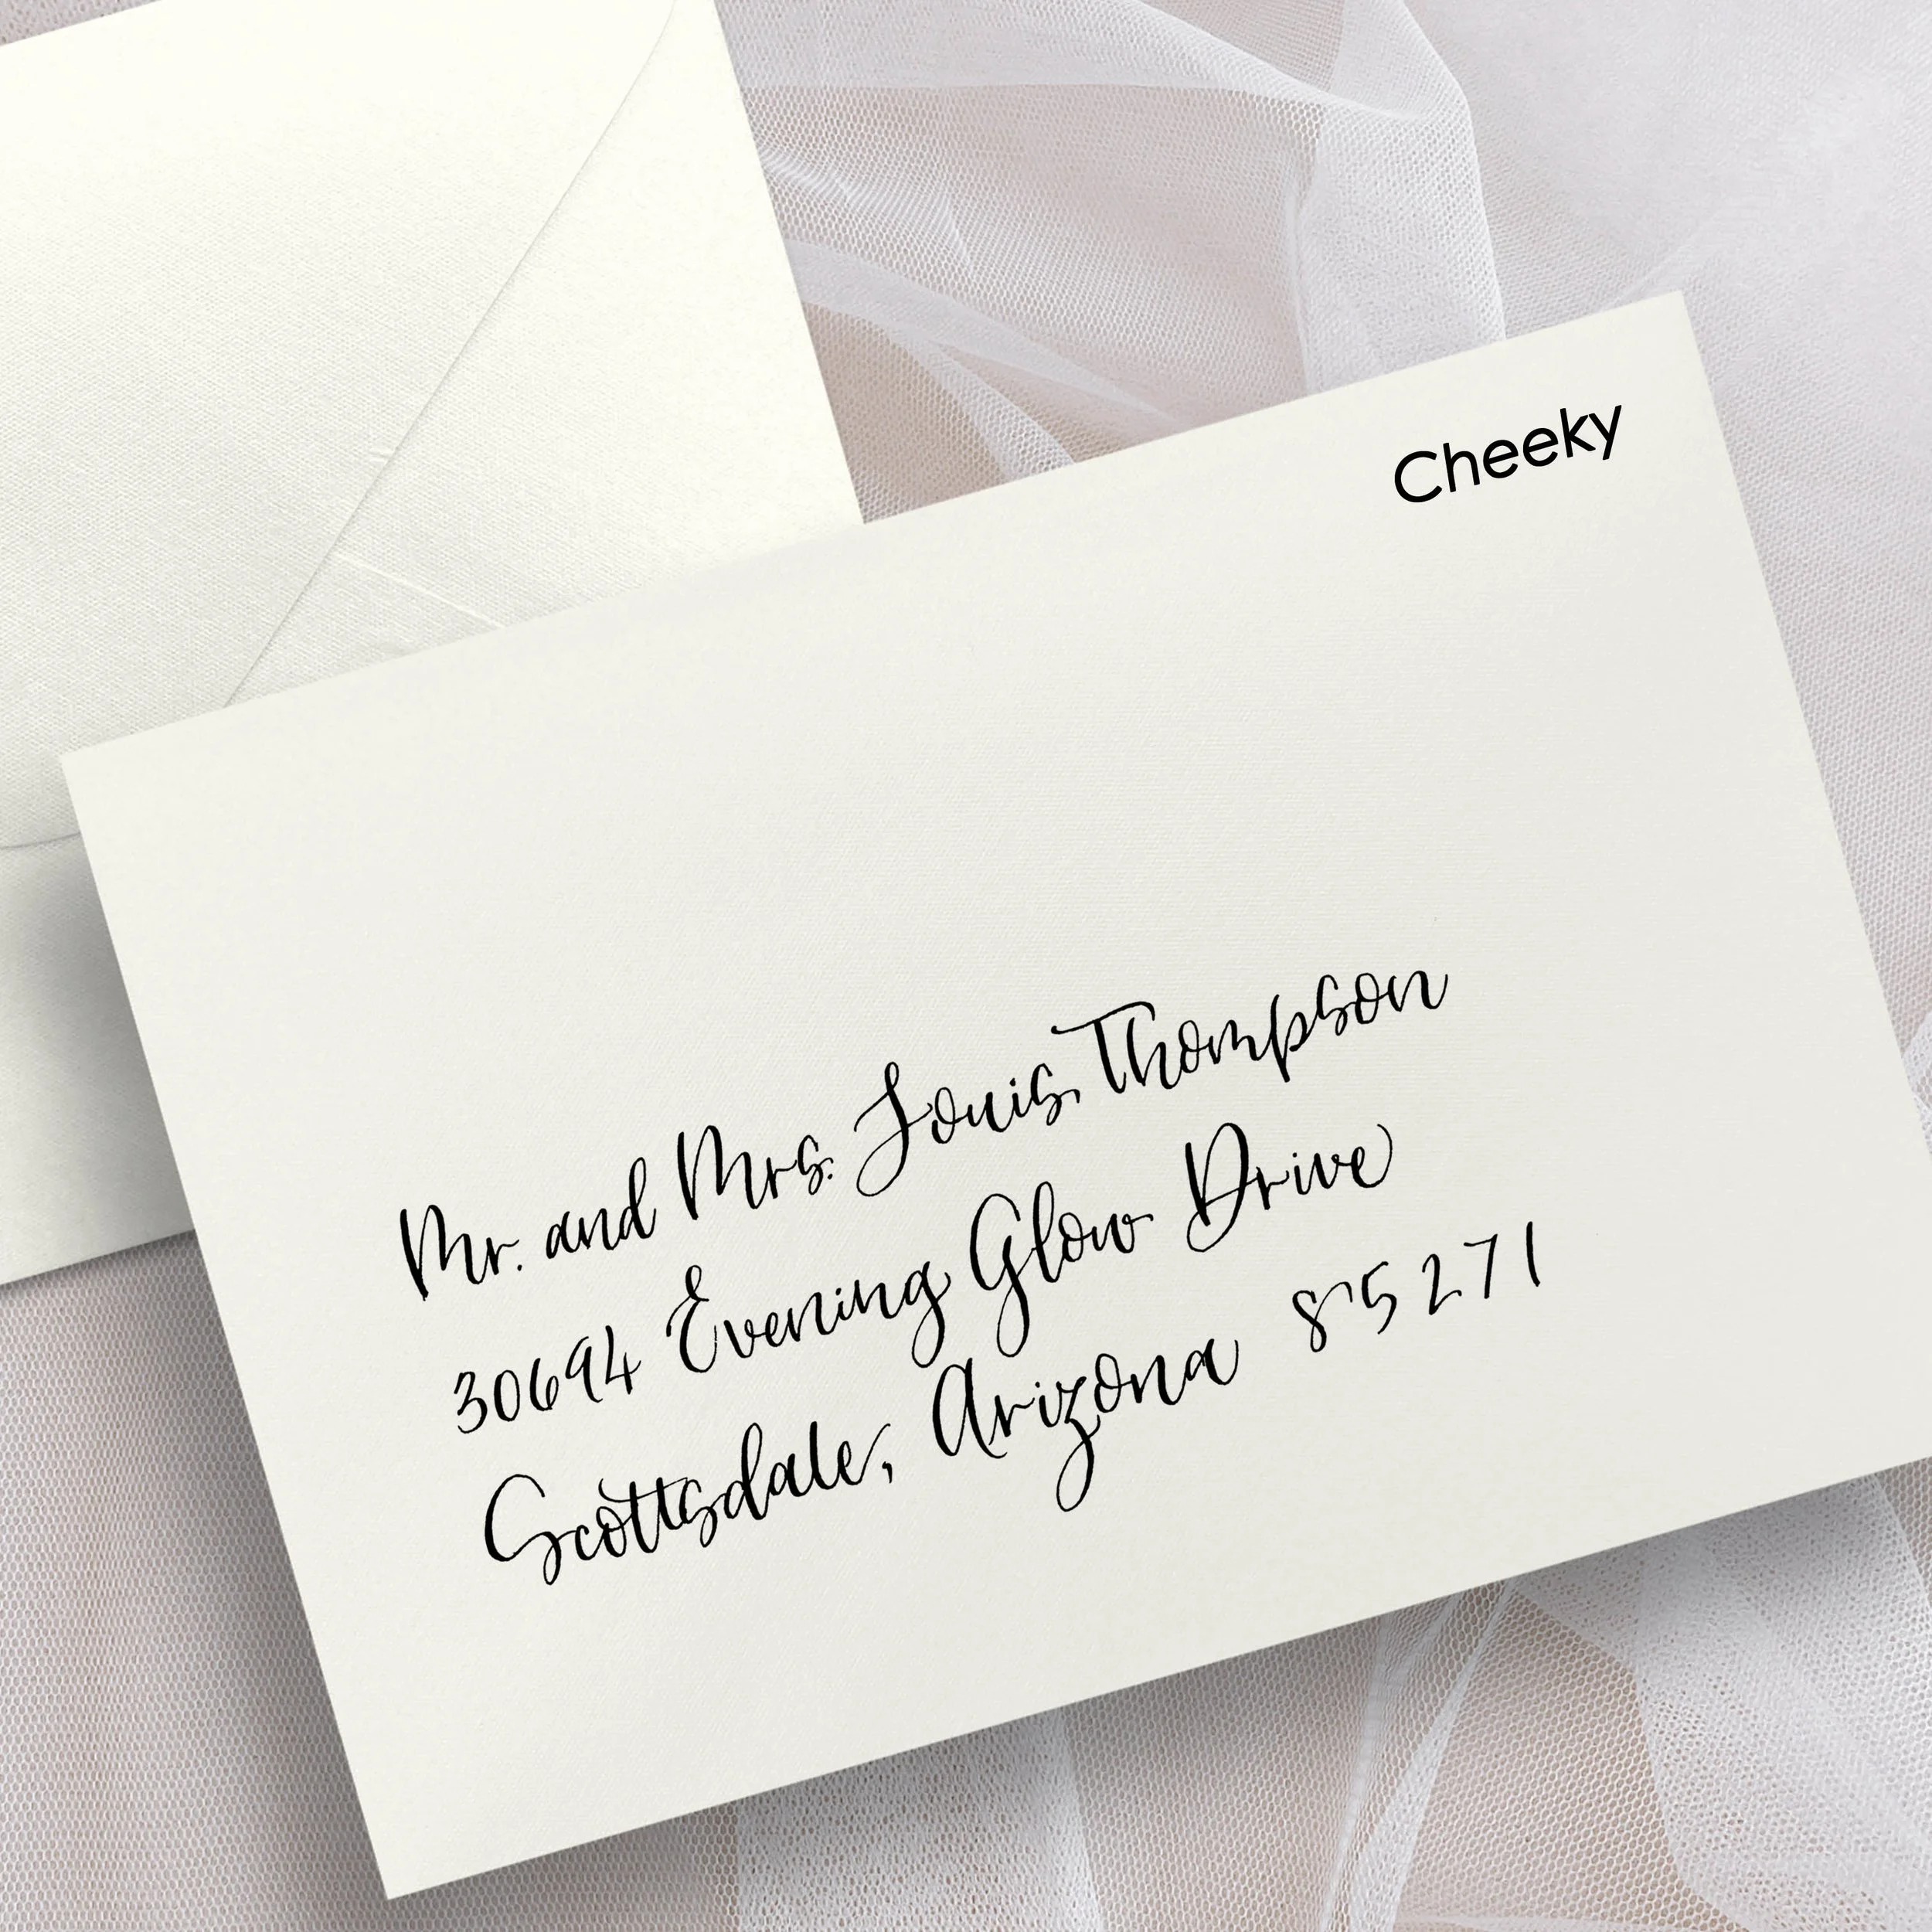 Cheeky
Mr. and Mrs. Louis Thompson
30694 Evening Glow Drive
Scottsdale, Arizona 85271